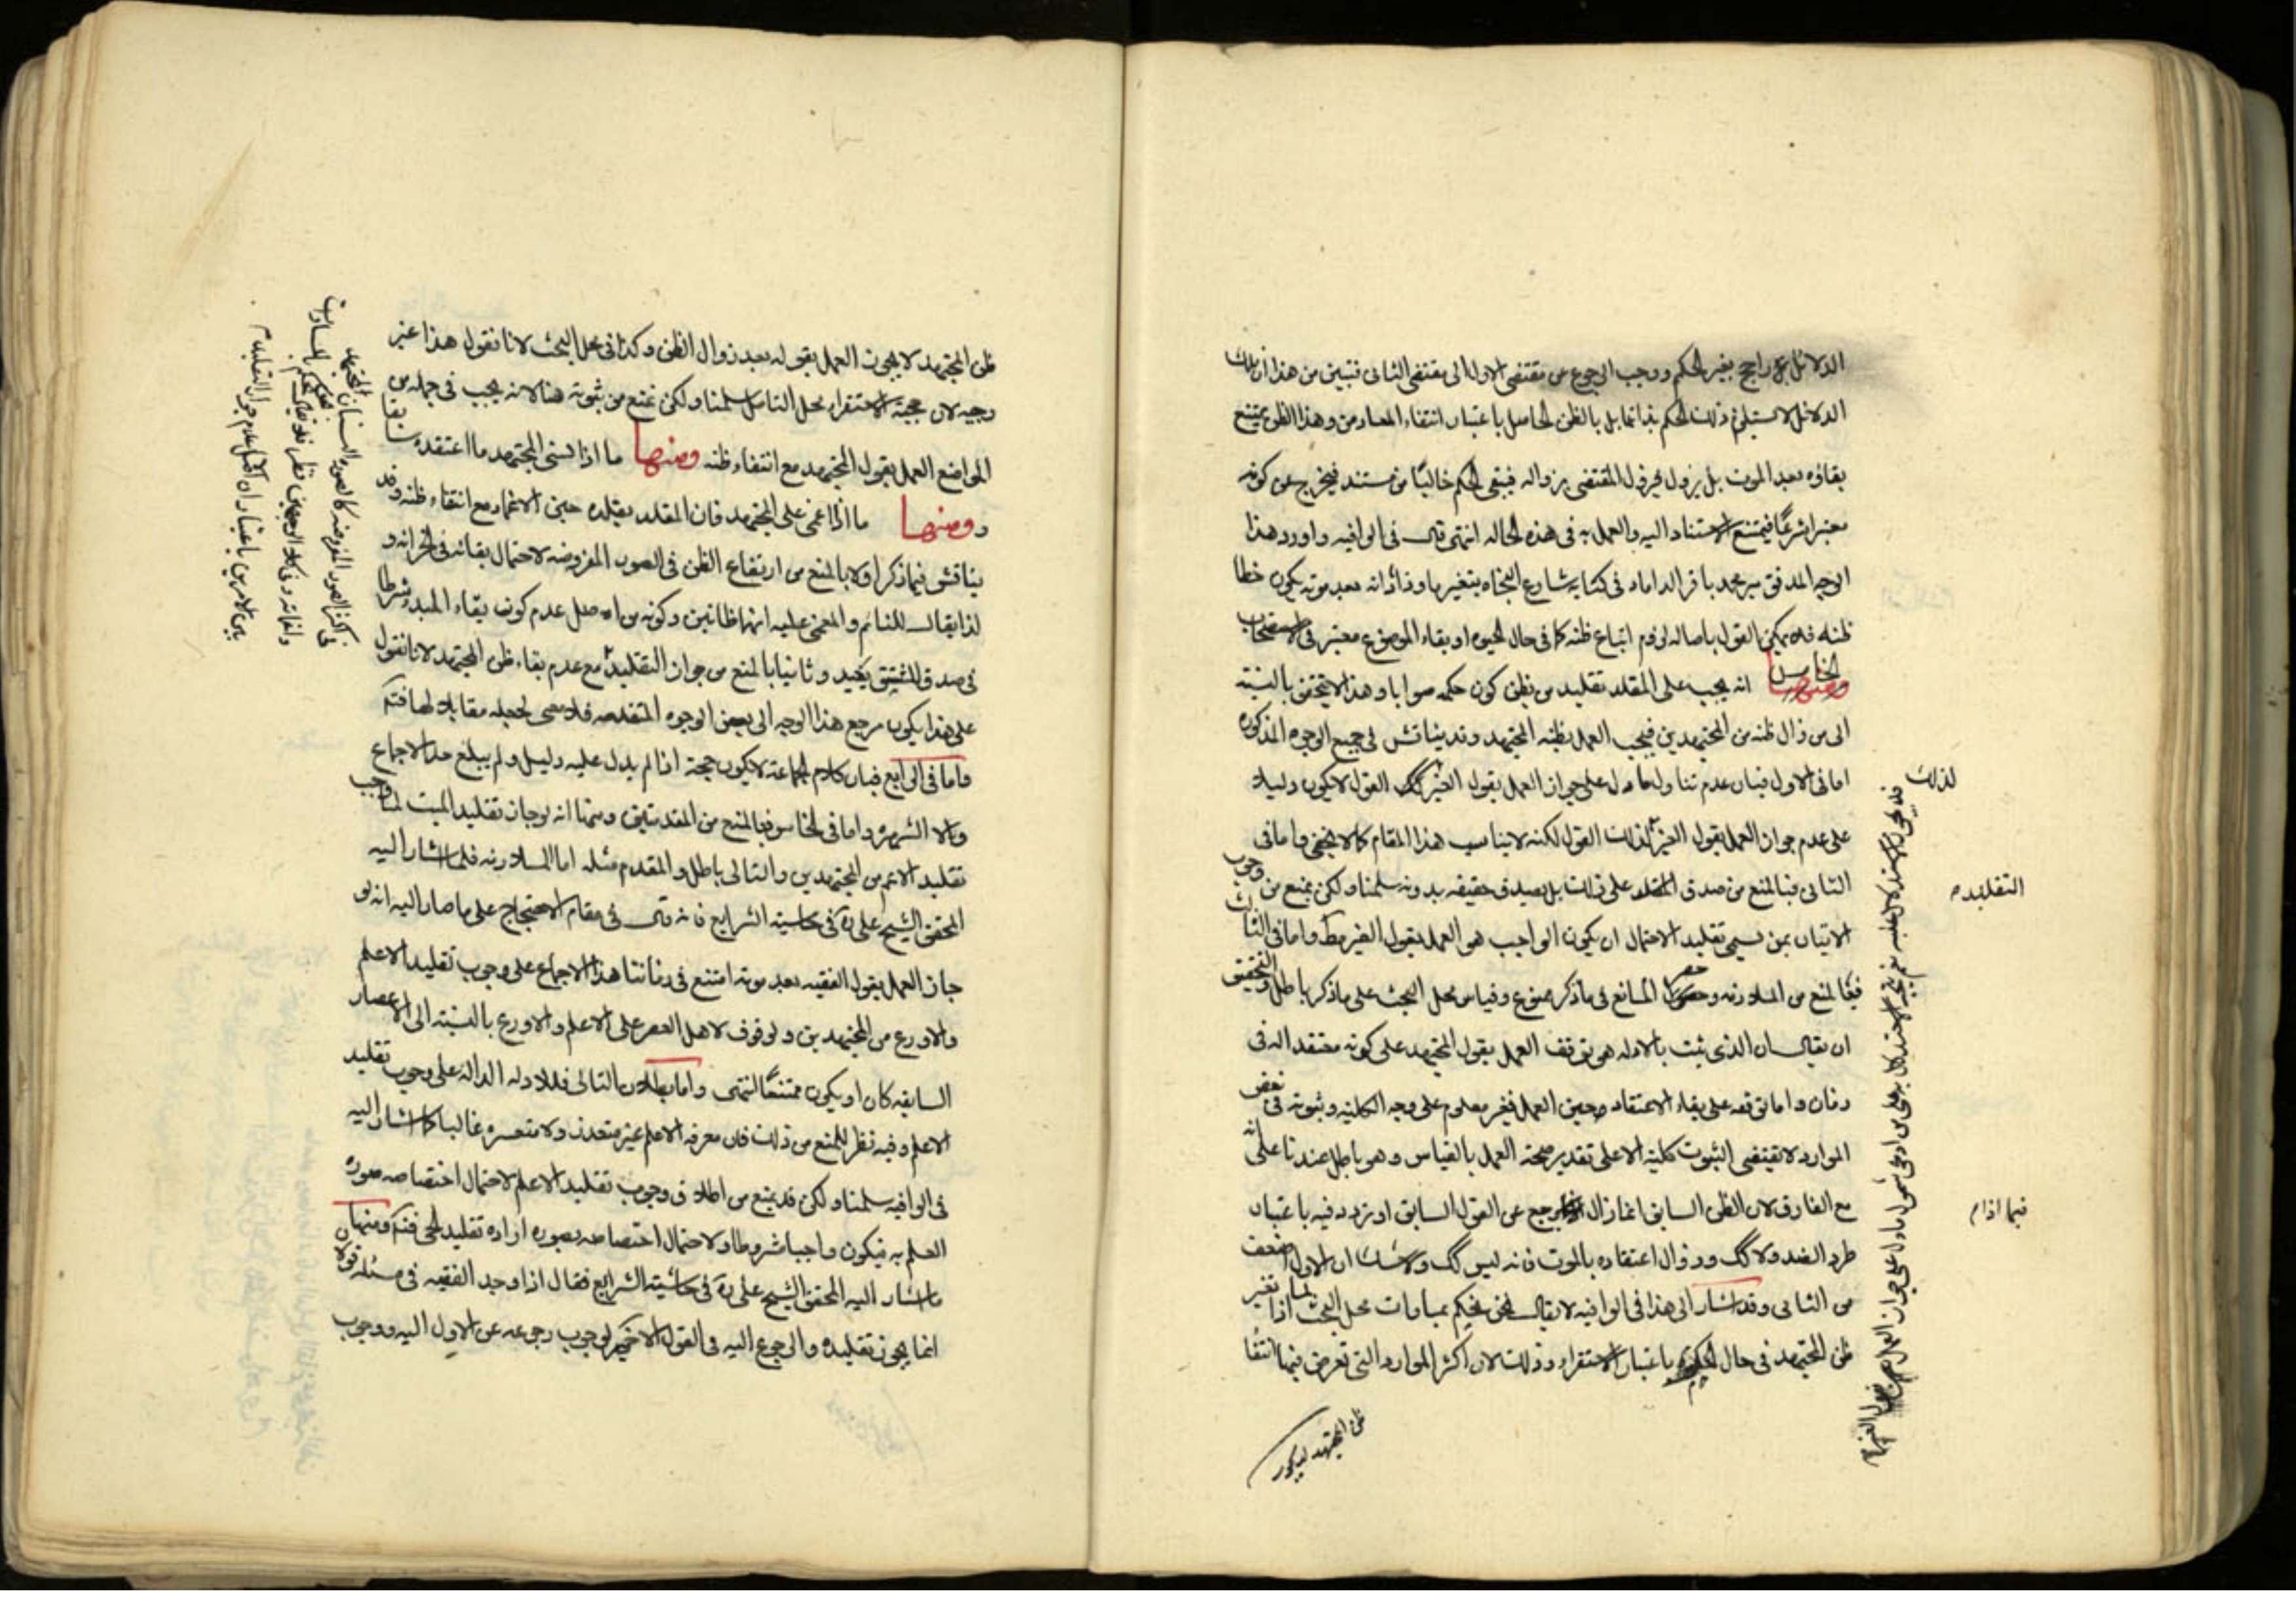 الدلائل راجح بغير الحكم ووجب الرجوع من مقتضى الاول الى مقتضى الثانى فتبين من هذا ان تلك
الدلائل لا تستلزم ذلك الحكم بذاتها بل بالظن الحاصل باعتبار انتفاء المعارض وهذا الظن يمتنع
بقاؤه بعد الموت بل يزول فيزول المقتضى بزواله فيبقى الحكم خاليًا من مستند فيخرج عن كونه
معتبرا شرعًا فيمتنع الاستناد اليه والعمل به فى هذه الحاله انتهى قال فى الوافيه واورد هذا
الوجه المدقق مير محمد باقر الداماد فى كتابه شارع النجاه بتغيرما وزاد انه بعد موته يكون خطا
ظنه فلا يمكن القول باصاله لزوم اتباع ظنه كما فى حال الحيوه اوبقاء الموضوع معتبر فى الاستصحاب
الخامس انه يجب على المقلد تقليد من يظن كون حكمه صوابا وهذا لا يتحقق بالنسبه
الى من زال ظنه من المجتهدين فيجب العمل بظنه المجتهد وقد يناقش فى جميع الوجوه المذكوره
اما فى الاول فبان عدم تناول ما دل على جواز العمل بقول الغير القول لا يكون دليلا
على عدم جواز العمل بقول الغير لذلك القول لكنه لا يناسب هذا المقام كما لا يخفى واما فى
الثانى فبا لمنع من صدق المقلد على ذلك بل يصدق حقيقه بدونه سلمنا ولكن نمنع من وجوب
الاتيان بمن يسمى تقليد الاحتمال ان يكون الواجب هو العمل بقول الغير مط واما فى الثالث
فبا لمنع من الملازمه وحصر المانع فى ما ذكر ممنوع وقياس محل البحث على ما ذكر باطل والتحقيق
ان يقال ان الذى يثبت بالادله هو توقف العمل بقول المجتهد على كونه معتقدا له فى
زمان واما توقفه على بقاء الاعتقاد حين العمل فغير معلوم على وجه الكليه وثبوته فى بعض
الموارد لا يقتضى الثبوت كليه الا على تقدير صحه العمل بالقياس وهو باطل عندنا على انه
مع الفارق لان الظن السابق انما زال رجع عن القول السابق او تردد فيه باعتبار
طرو الضد ولا كك وزوال اعتقاده بالموت فانه ليس كك ولا شك ان الاول اضعف
من الثانى وقد اشار الى هذا فى الوافيه لا يقال نحن نحكم بمساوات محل البحث لما اذا تغير
ظن المجتهد فى حال باعتبار الاستقراء وذلك لان اكثر الموارد التى تعرض فيها انتفا
ظن المجتهد
لذلك
التقليد م
فيما اذا م
ظن المجتهد لا يجوز العمل بقوله بعد زوال الظن وكذا فى محل البحث لانا نقول هذا غير
وجيه لان حجيه الاستقراء محل التامل سلمنا ولكن نمنع من ثبوته هنا لانه يجب فى جمله من
المواضع العمل بقول المجتهد مع انتفاء ظنه ومنها ما اذا نسى المجتهد ما اعتقده سابقا
ومنها ما اذا اغمى على المجتهد فان المقلد يقلده حين الاغماء مع انتفاء ظنه وقد
يناقش فيما ذكر اولا بالمنع من ارتفاع الظن فى الصور المفروضه لاحتمال بقائه فى الخزانه و
لذا يقال للنائم والمغمى عليه انهما ظانين وكونه من الاصل عدم كون بقاء المبدء شرطا
فى صدق المشتق بحيد وثانيا بالمنع من جواز التقليد مع عدم بقاء ظن المجتهد لانا نقول
على هذا يكون مرجع هذا الوجه الى بعض الوجوه المتقدمه فلا معنى لجعله مقابلا لها فتم
واما فى الرابع فبان كلام الجماعه لا يكون حجه اذا لم يدل عليه دليل ولم يبلغ حد الاجماع
ولا الشهره واما فى الخامس فبا لمنع من المقدمتين ومنها انه لو جاز تقليد الميت لما وجب
تقليد الاعلم من المجتهدين والتالى باطل والمقدم مثله اما الملازمه فلما اشار اليه
المحقق الشيخ على ره فى حاشيه الشرايع فانه قال فى مقام الاحتجاج على ما صار اليه انه لو
جاز العمل بقول الفقيه بعد موته امتنع فى زماننا هذا الاجماع على وجوب تقليد الاعلم
والاورع من المجتهدين والوقوف لاهل العصر على الاعلم والاورع بالنسبه الى الاعصار
السابقه كاد ان يكون ممتنعًا انتهى واما بطلان التالى فللادله الداله على وجوب تقليد
الاعلم وفيه نظر للمنع من ذلك فان معرفه الاعلم غير متعذر ولا متعسره غالبا كما اشار اليه
فى الوافيه سلمنا ولكن قد يمنع من اطلاق وجوب تقليد الاعلم لاحتمال اختصاصه صوره
العلم به فيكون واجبا مشروطا ولاحتمال اختصاصه بصوره اراده تقليد الحى فتم ومنها
ما اشار اليه المحقق الشيخ على ره فى حاشيه الشرايع فقال اذا وجد الفقيه فى مسئله قولان
انما يجوز تقليده والرجوع اليه فى القول الاخير لوجوب رجوعه عن الاول اليه ووجوب